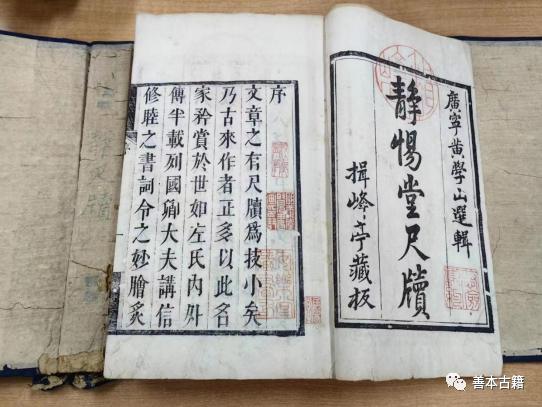 廣寧黃學山選輯
靜惕堂尺牘
揖峰亭藏板
序
文章之有尺牘爲技小矣
乃古來作者正多以此名
家矜賞於世如左氏內外
傳半載列國卿大夫講信
修睦之書詞令之妙膾炙
善本古籍